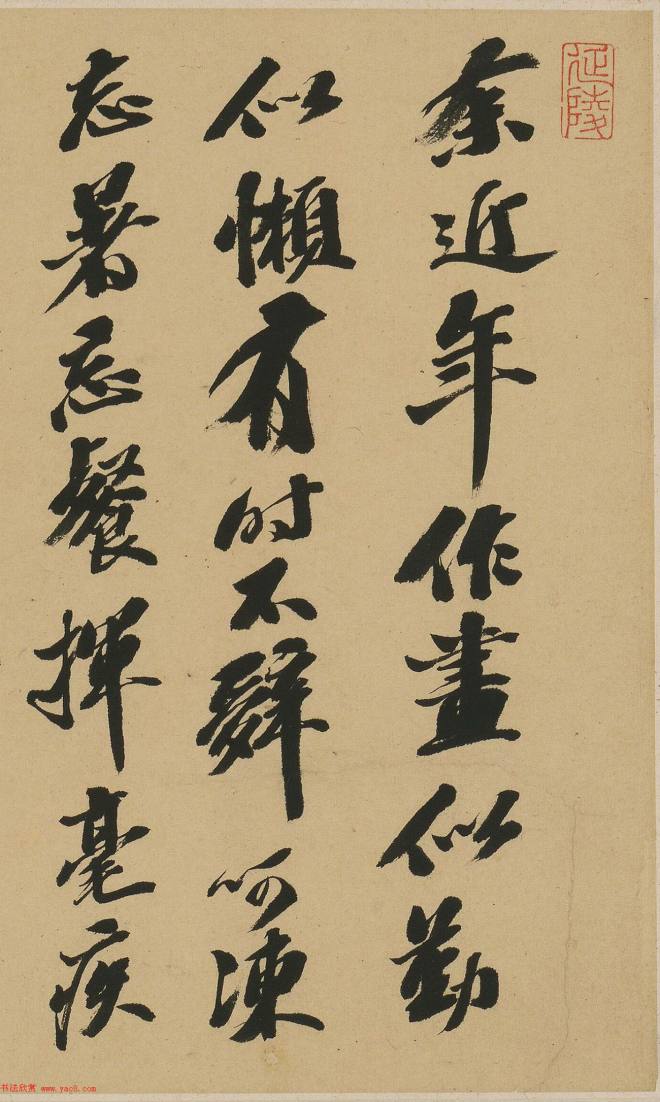 延陵
余近年作畫似勤
似懶有时不辤呵凍
忘暑忘餐揮毫疾
书法欣赏 www.yac8.com